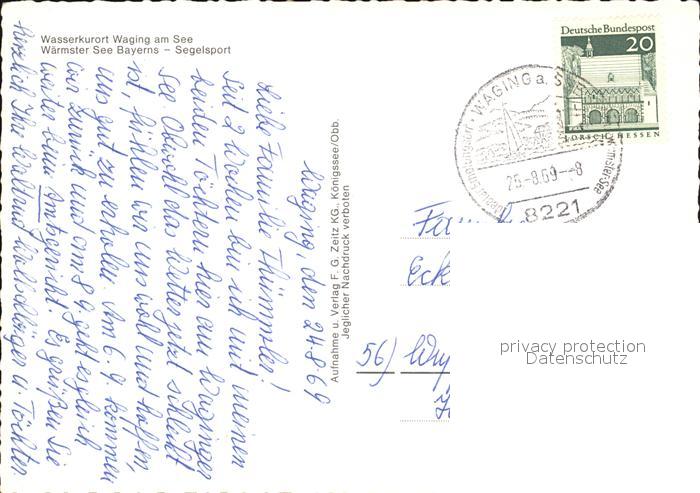 Wasserkurort Waging am See
Wärmster See Bayerns – Segelsport
Waging, den 24.8.69
Liebe Familie Thümmler!
Seit 2 Wochen bin ich mit meinen
beiden Töchtern hier am Waginger
See. Obwohl das Wetter jetzt schlecht
ist, fühlen wir uns wohl und hoffen,
uns gut zu erholen. Am 6. 9. kommen
wir zurück und am 8. 9. geht es gleich
weiter beim Amtsgericht. Es grüßen Sie
herzlich Ihre Waltraud u. Töchter
Aufnahme u. Verlag F. G. Zeitz KG., Königssee/Obb.
Jeglicher Nachdruck verboten
Deutsche Bundespost
20
LORSCH/HESSEN
WAGING a. S
wärmster See
25.-8.69--8
8221
Fam
Eck
56) Wup
privacy protection
Datenschutz